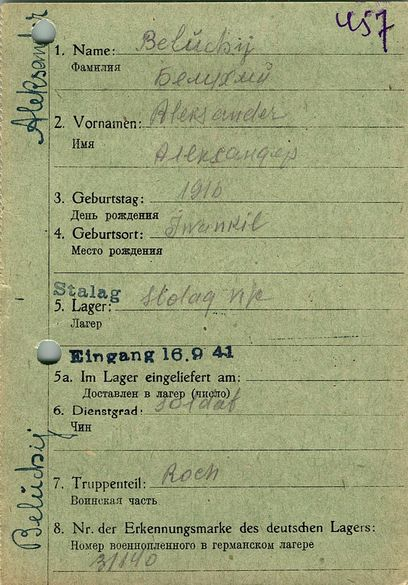 457
Aleksander
1. Name: Belúchij
Фамилия
Белухий
2. Vornamen: Aleksander
Имя
Александер
3. Geburtstag: 1916
День рождения
4. Geburtsort: Iwankil
Место рождения
Stalag
5. Lager: Stolag
Лагер
Eingang 16.9 41
5a. Im Lager eingeliefert am:
Доставлен в лагер (число)
6. Dienstgrad: Soldat
Чин
Belúchij
7. Truppenteil: Roch
Воинская часть
8. Nr. der Erkennungsmarke des deutschen Lagers:
Номер военнопленного в германском лагере
31140